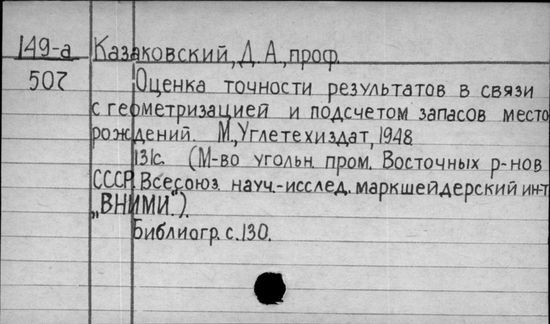 149-а Казаковский, Д. А., проф.
507 Оценка точности результатов в связи
с геометризацией и подсчетом запасов место
рождений. М., Углетехиздат, 1948
131с. (М-во угольн. пром. Восточных р-нов
СССР. Всесоюз. науч.-исслед. маркшейдерский ин-т
„ВНИМИ“).
Библиогр. с. 130.